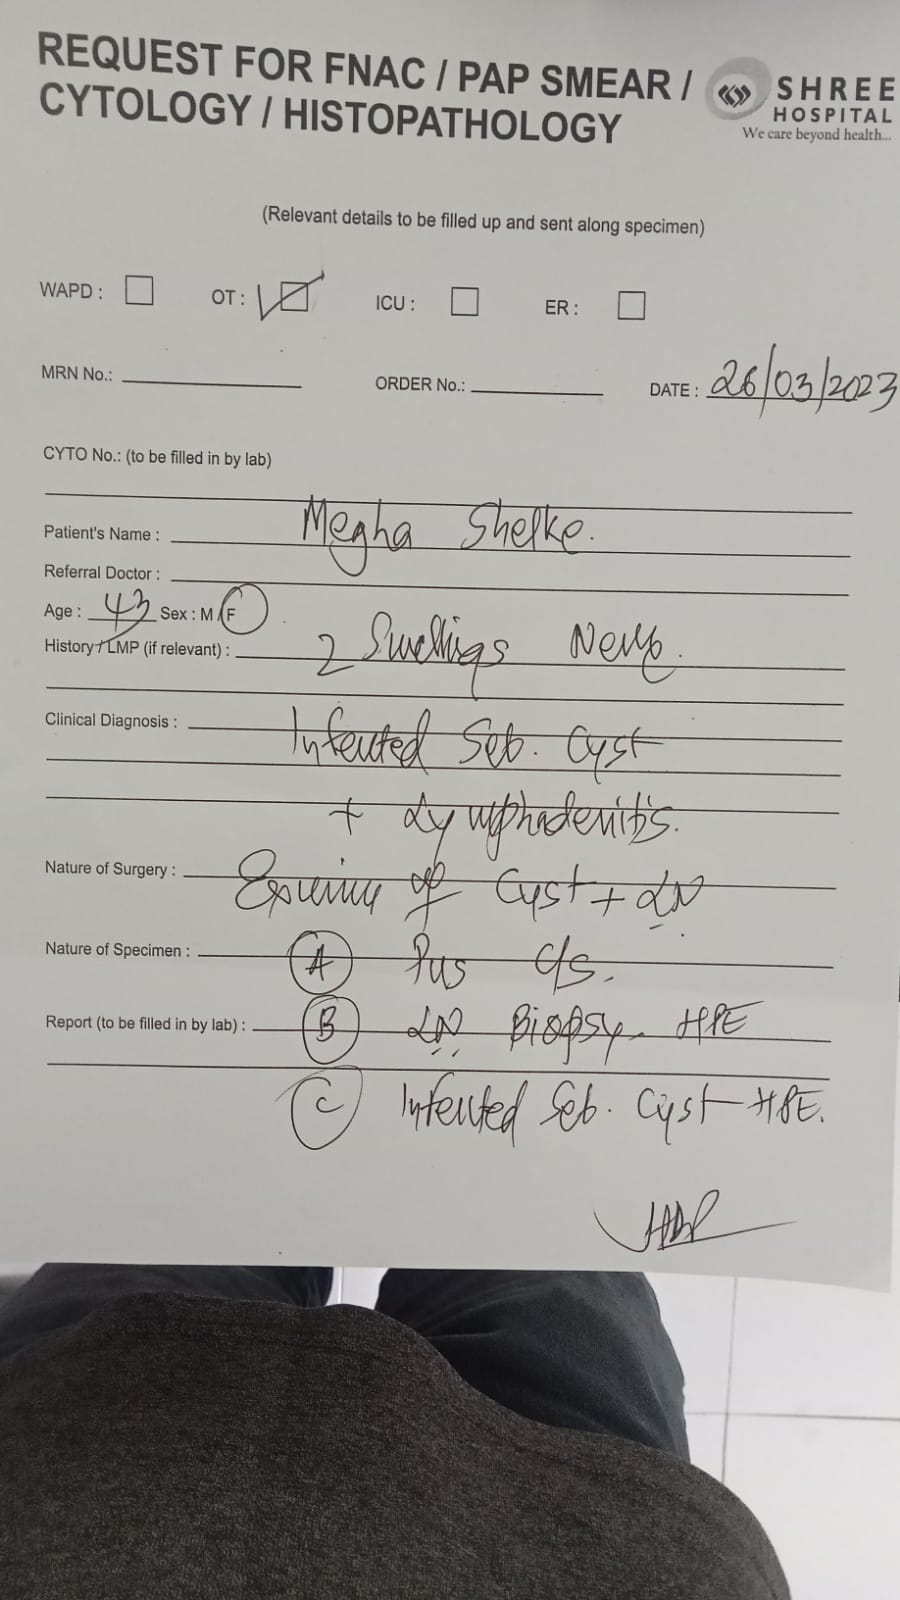 REQUEST FOR FNAC / PAP SMEAR /
CYTOLOGY / HISTOPATHOLOGY
SHREE
HOSPITAL
We care beyond health...
(Relevant details to be filled up and sent along specimen)
WAPD : OT : ICU : ER :
MRN No.: ORDER No.: DATE : 26/03/2023
CYTO No.: (to be filled in by lab)
Patient's Name : Megha Shelke.
Referral Doctor :
Age : 43 Sex : M / F
History / LMP (if relevant) : 2 Swellings
Clinical Diagnosis : Infected Seb. Cyst
+ Lymphadenitis.
Nature of Surgery : Excision of Cyst + LN
Nature of Specimen : A Pus C/S.
Report (to be filled in by lab) : B LN Biopsy - HPE
C Infected Seb. Cyst - HPE.